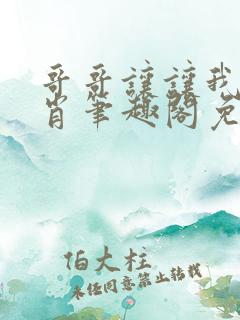 哥哥讓讓我
肖筆趣閣免
伯大柱
未经同意禁止转载